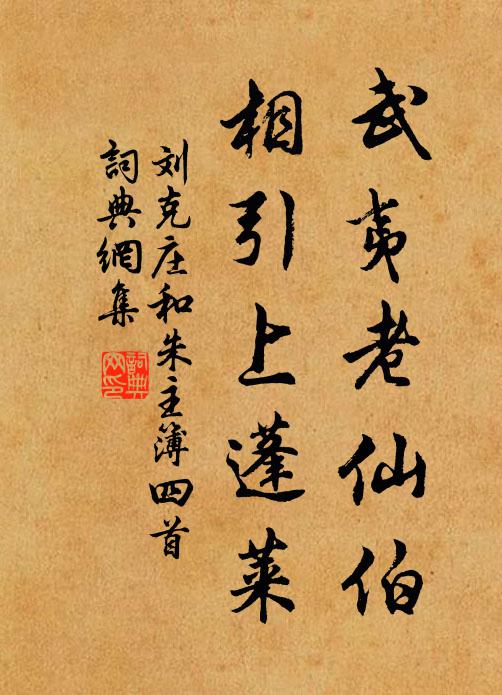 武夷老仙伯
相引上蓬莱
刘克庄和朱主簿四首
詞典網集
詞典网印